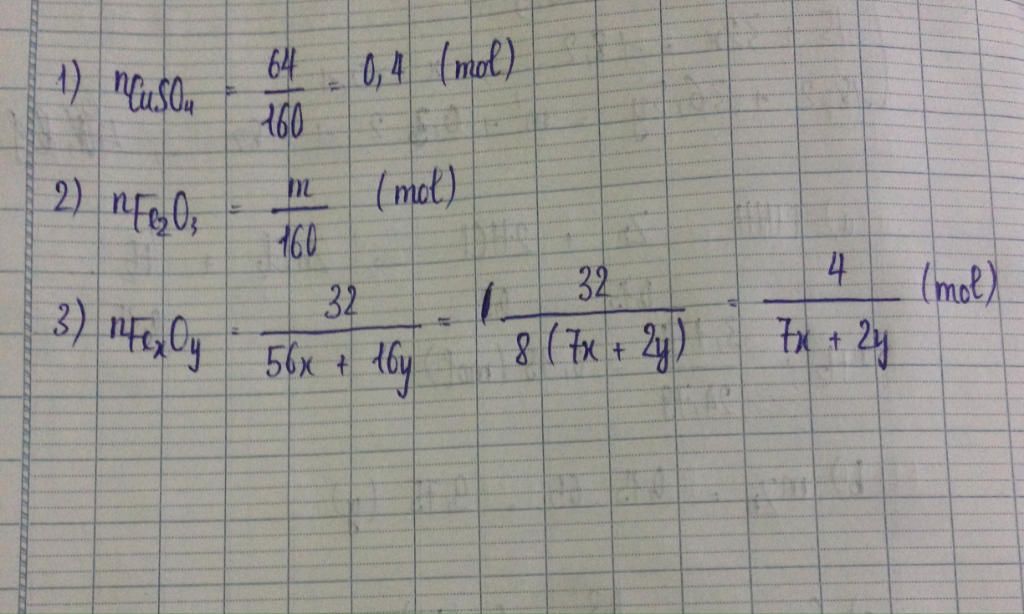 1) nCuSO₄ = 64/160 = 0,4 (mol)
2) nFe₂O₃ = m/160 (mol)
3) nFeₓOᵧ = 32/(56x + 16y) = 32/(8(7x + 2y)) = 4/(7x + 2y) (mol)